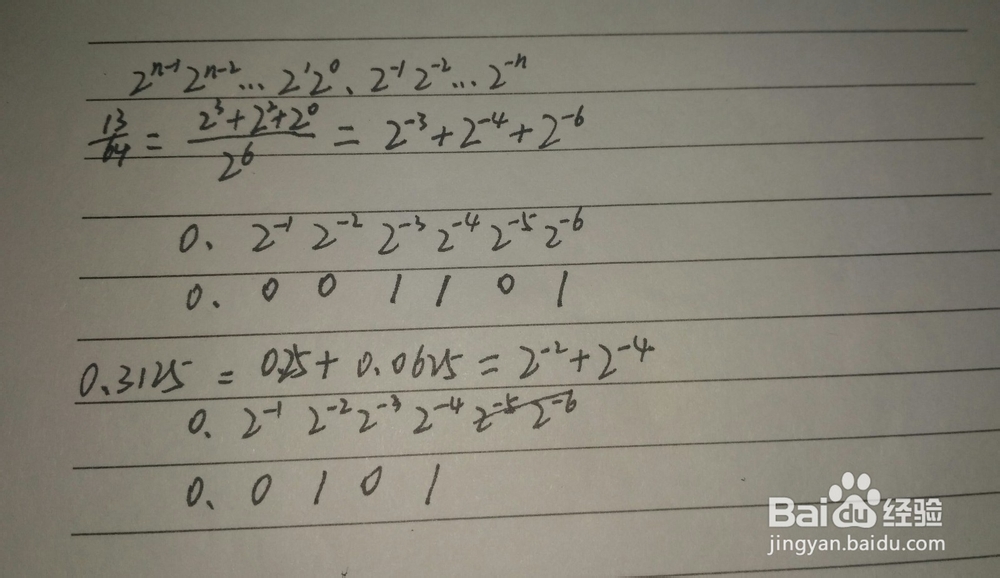 2ⁿ⁻¹ 2ⁿ⁻² ... 2¹ 2⁰ . 2⁻¹ 2⁻² ... 2⁻ⁿ
13/64 = (2³+2²+2⁰)/2⁶ = 2⁻³+2⁻⁴+2⁻⁶
0. 2⁻¹ 2⁻² 2⁻³ 2⁻⁴ 2⁻⁵ 2⁻⁶
0. 0 0 1 1 0 1
0.3125 = 0.25 + 0.0625 = 2⁻²+2⁻⁴
0. 2⁻¹ 2⁻² 2⁻³ 2⁻⁴ 2⁻⁵ 2⁻⁶
0. 0 1 0 1
Baidu 经验
jingyan.baidu.com